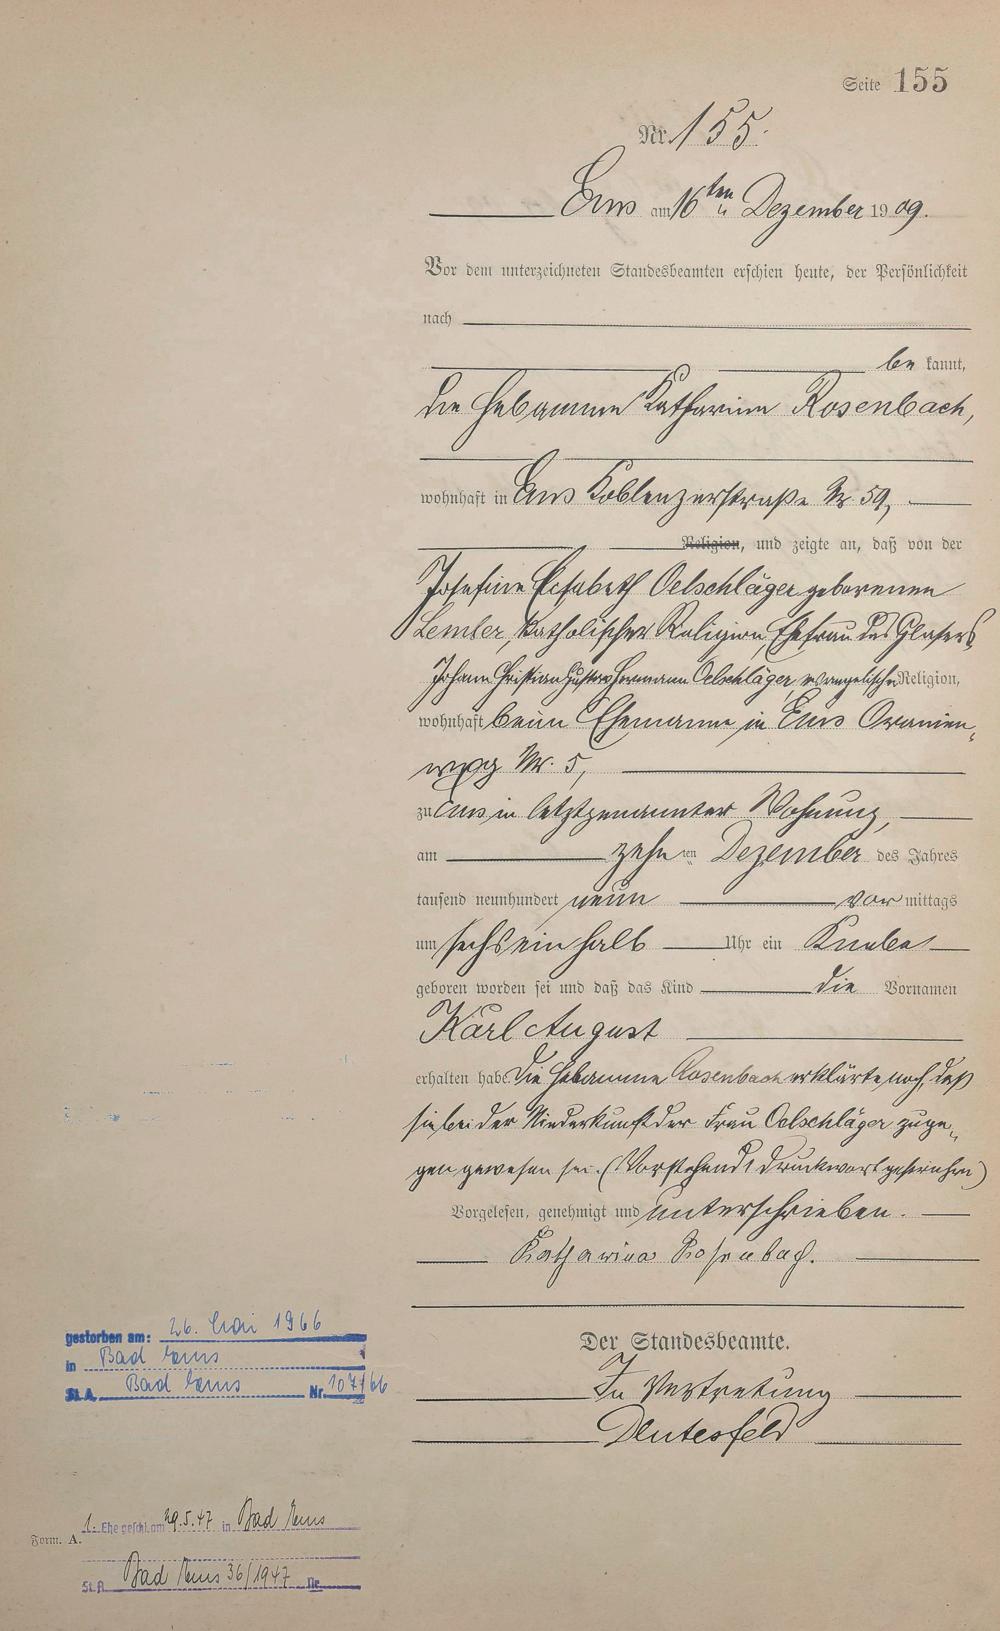 Seite 155
Nr. 155.
Ems am 16ten Dezember 1909.
Vor dem unterzeichneten Standesbeamten erschien heute, der Persönlichkeit
nach
be kannt,
die Hebamme Katharina Rosenbach,
wohnhaft in Ems Koblenzerstraße Nr. 59,
Religion, und zeigte an, daß von der
Josefine Elisabeth Oelschläger geborenen
Lemler, katholischer Religion, Ehefrau des Glasers
Johann Christian Gustav Hermann Oelschläger, evangelischer Religion,
wohnhaft beim Ehemanne in Ems Oranien-
weg Nr. 5,
zu Ems in letztgenannter Wohnung,
am zehnten Dezember des Jahres
tausend neunhundert neun vor mittags
um sechs ein halb Uhr ein Knabe
geboren worden sei und daß das Kind die Vornamen
Karl August
erhalten habe. Die Hebamme Rosenbach erklärte noch, daß
sie bei der Niederkunft der Frau Oelschläger zuge-
gen gewesen sei. (Vorstehend 1 Druckwort gestrichen)
Vorgelesen, genehmigt und unterschrieben.
Katharina Rosenbach.
Der Standesbeamte.
In Vertretung
gestorben am: 26. Mai 1966
in Bad Ems
St.A. Bad Ems Nr. 107/66
Form. A.
1. Ehe geschl. am 29.5.47 in Bad Ems
St.A. Bad Ems 36/1947 Nr.